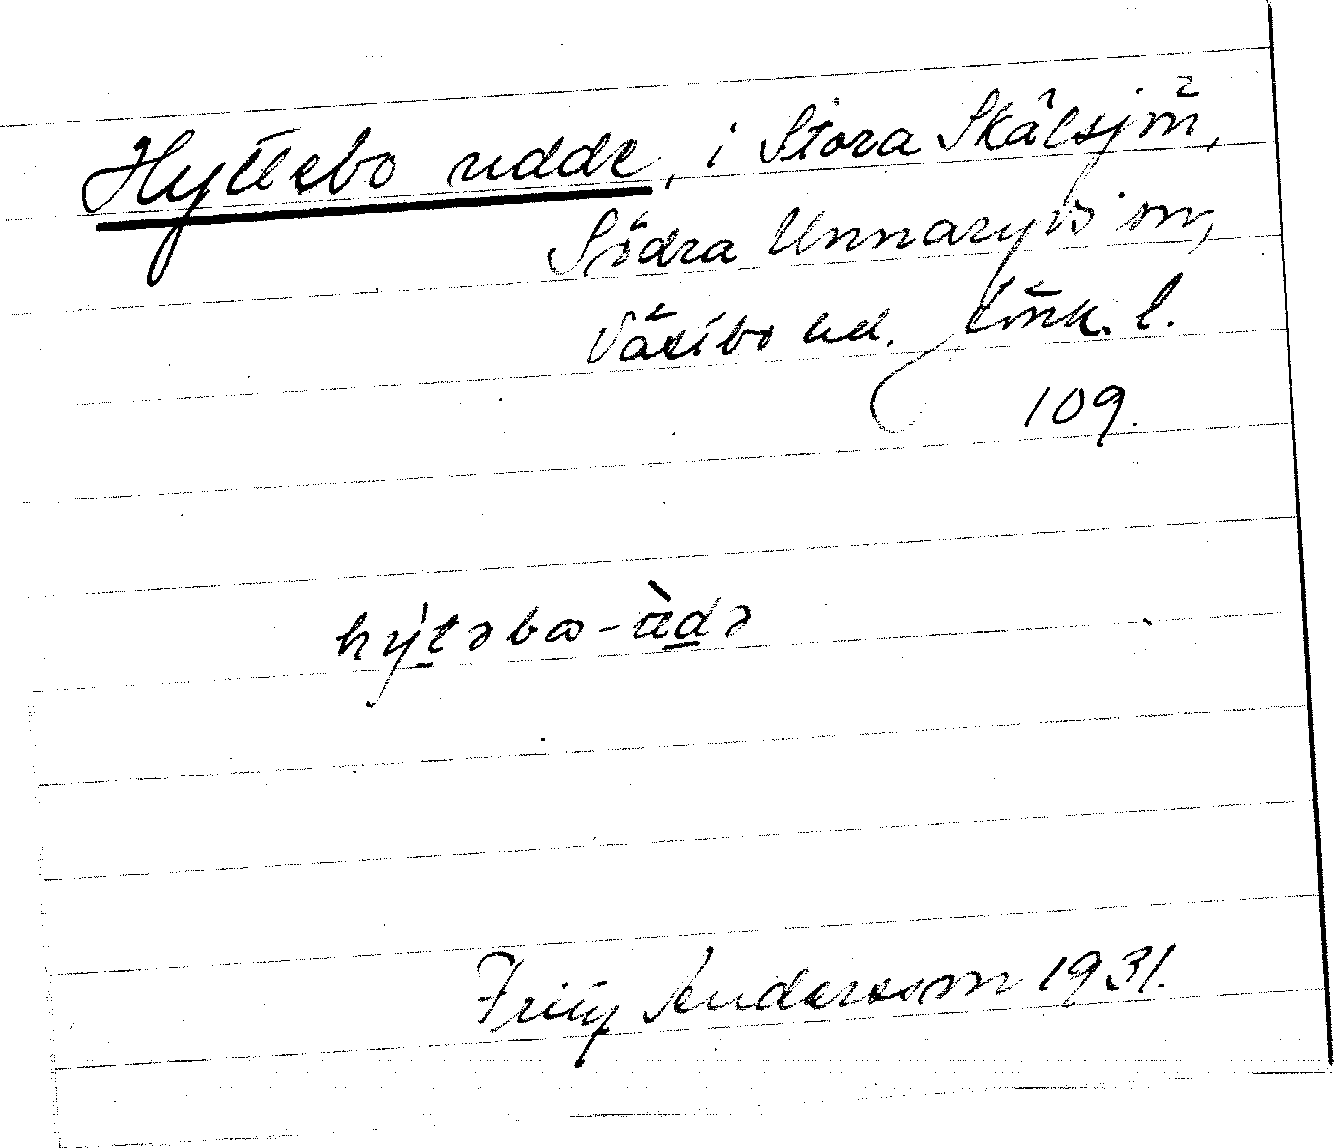 Hyltebo udde, i Stora Skälsjön,
Södra Unnaryds sn,
Västbo hd. Jönk. l.
109.
Fritz Andersson 1931.